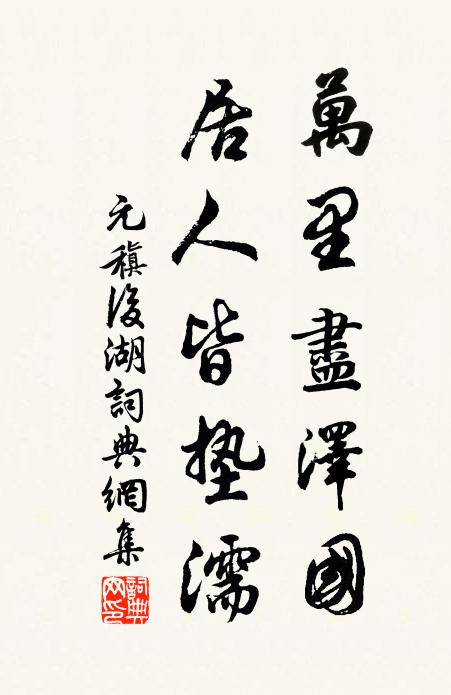 萬里盡澤國
居人皆墊濡
元稹後湖詞典網集
詞典網印